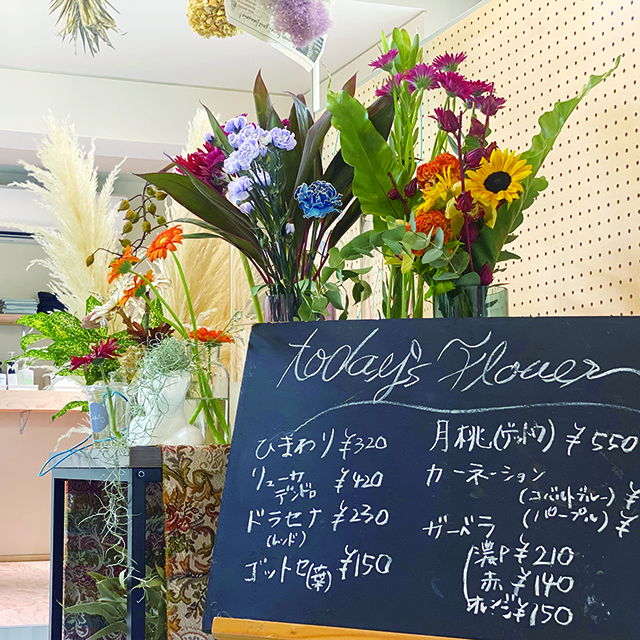 today's Flower
ひまわり ¥320
リューカ
デンドロ ¥420
ドラセナ ¥230
(レッド)
ゴットセ(葉) ¥150
月桃(ゲットウ) ¥550
カーネーション
(コバルトブルー) ¥
(パープル) ¥
ガーベラ
濃P ¥210
赤 ¥140
オレンジ ¥150